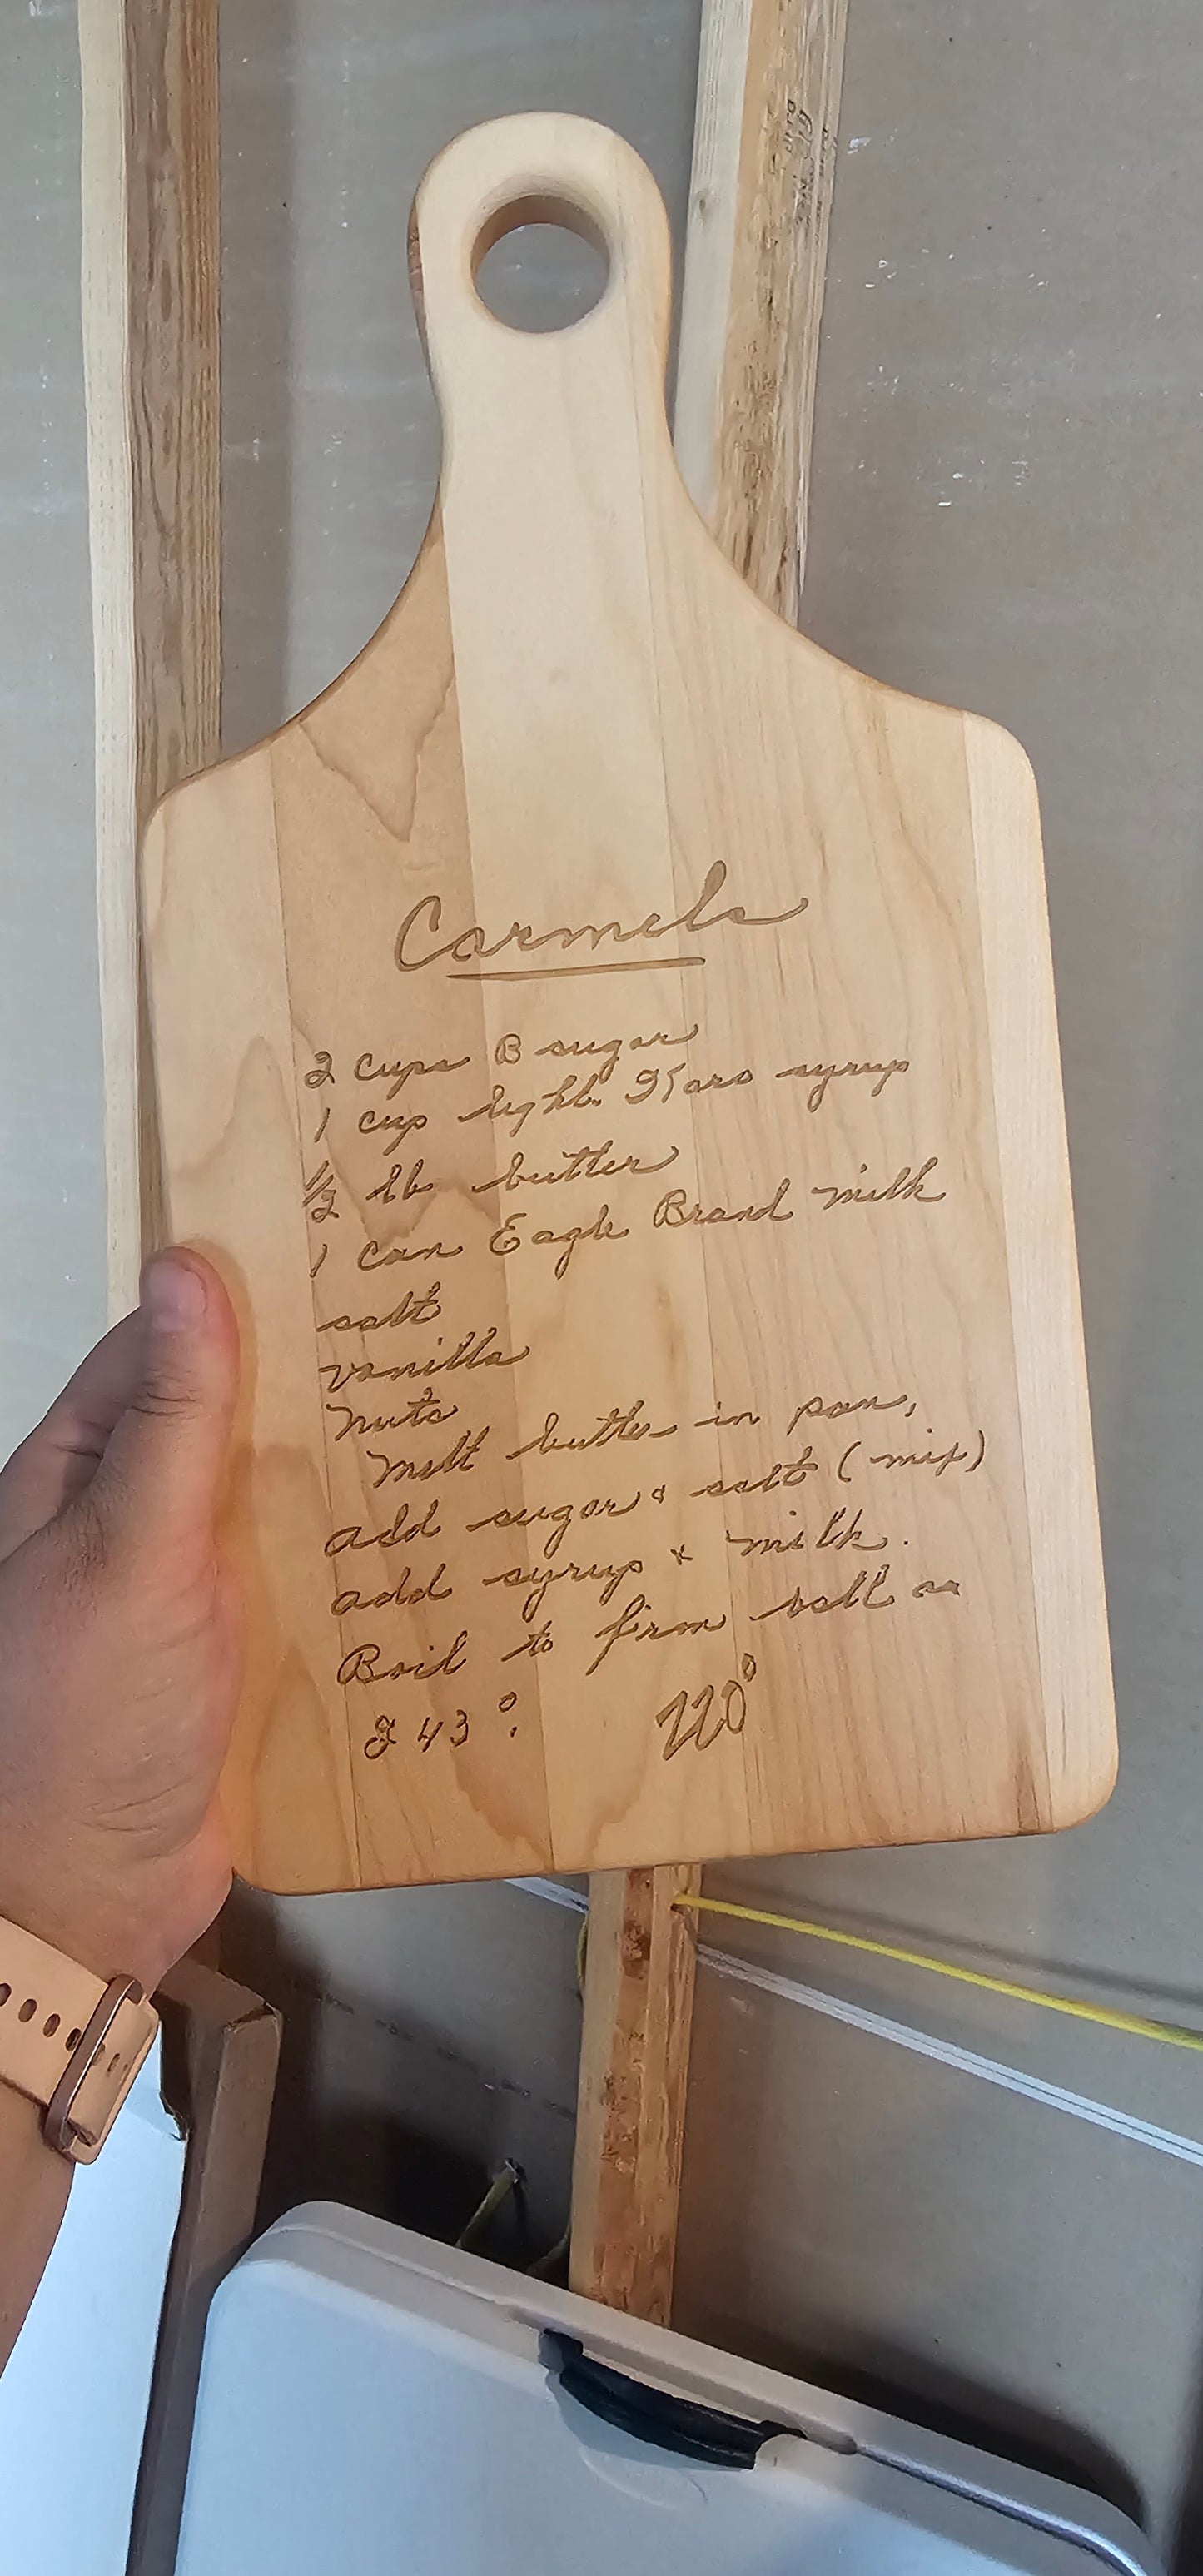 Carmels
2 cups B sugar
1 cup light Karo syrup
1/2 lb butter
1 can Eagle Brand milk
salt
vanilla
nuts
Melt butter in pan,
add sugar & salt (mix)
add syrup & milk.
Boil to firm ball or
243°. 220°